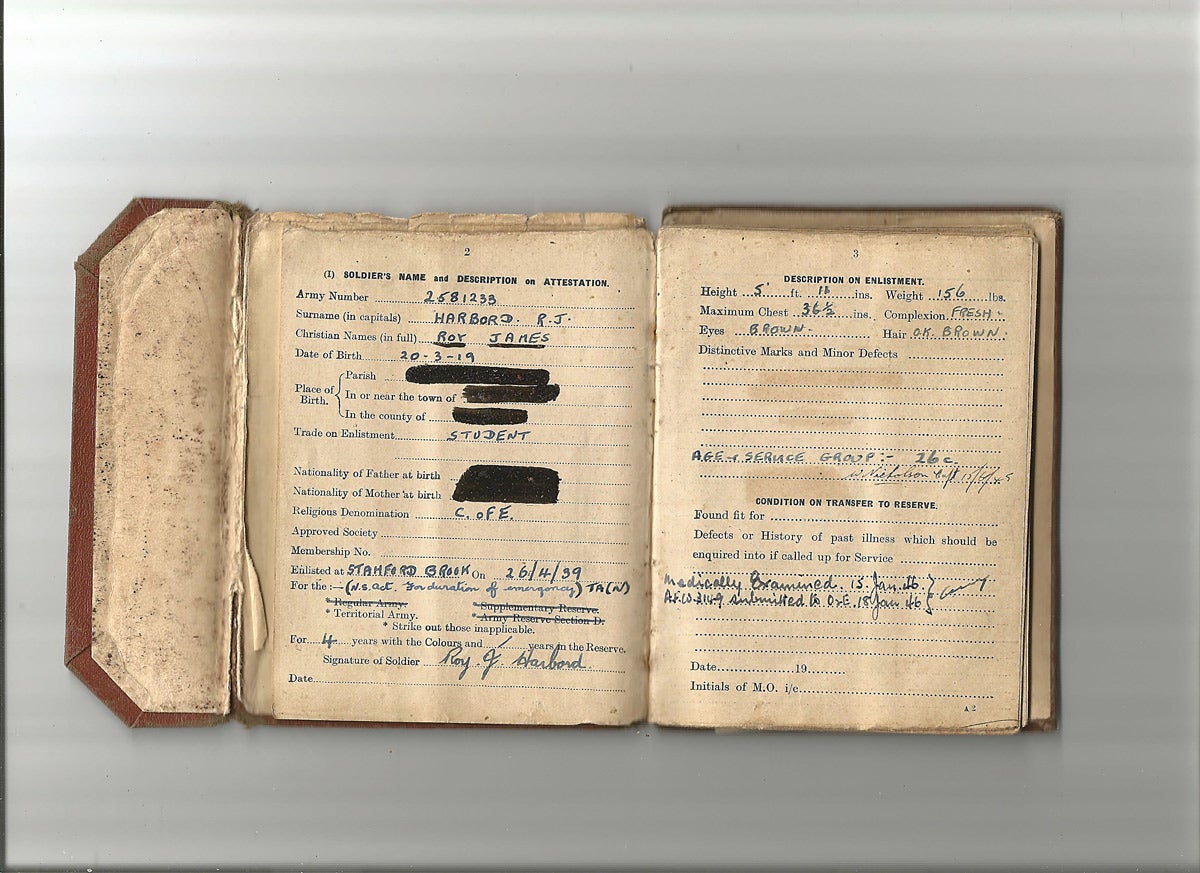 2
(I) SOLDIER'S NAME and DESCRIPTION on ATTESTATION.
Army Number 2581233
Surname (in capitals) HARBORD. R.J.
Christian Names (in full) ROY JAMES
Date of Birth 20-3-19
Place of Birth.
Parish
In or near the town of
In the county of
Trade on Enlistment STUDENT
Nationality of Father at birth
Nationality of Mother at birth
Religious Denomination C. OF E.
Approved Society
Membership No.
Enlisted at STAMFORD BROOK On 26/4/39
For the :— (N.S. Act. For duration of emergency) TA(N)
* Regular Army. * Supplementary Reserve.
* Territorial Army. * Army Reserve Section D.
* Strike out those inapplicable.
For 4 years with the Colours and / years in the Reserve.
Signature of Soldier Roy J Harbord
Date
3
DESCRIPTION ON ENLISTMENT.
Height 5' ft. 11 ins. Weight 156 lbs.
Maximum Chest 36½ ins. Complexion FRESH -
Eyes BROWN. Hair DK. BROWN.
Distinctive Marks and Minor Defects
AGE & SERVICE GROUP :- 26c
CONDITION ON TRANSFER TO RESERVE.
Found fit for
Defects or History of past illness which should be
enquired into if called up for Service
Medically Examined 15 Jan 46
submitted to 18 Jan 46
Date 19
Initials of M.O. i/c
A 2